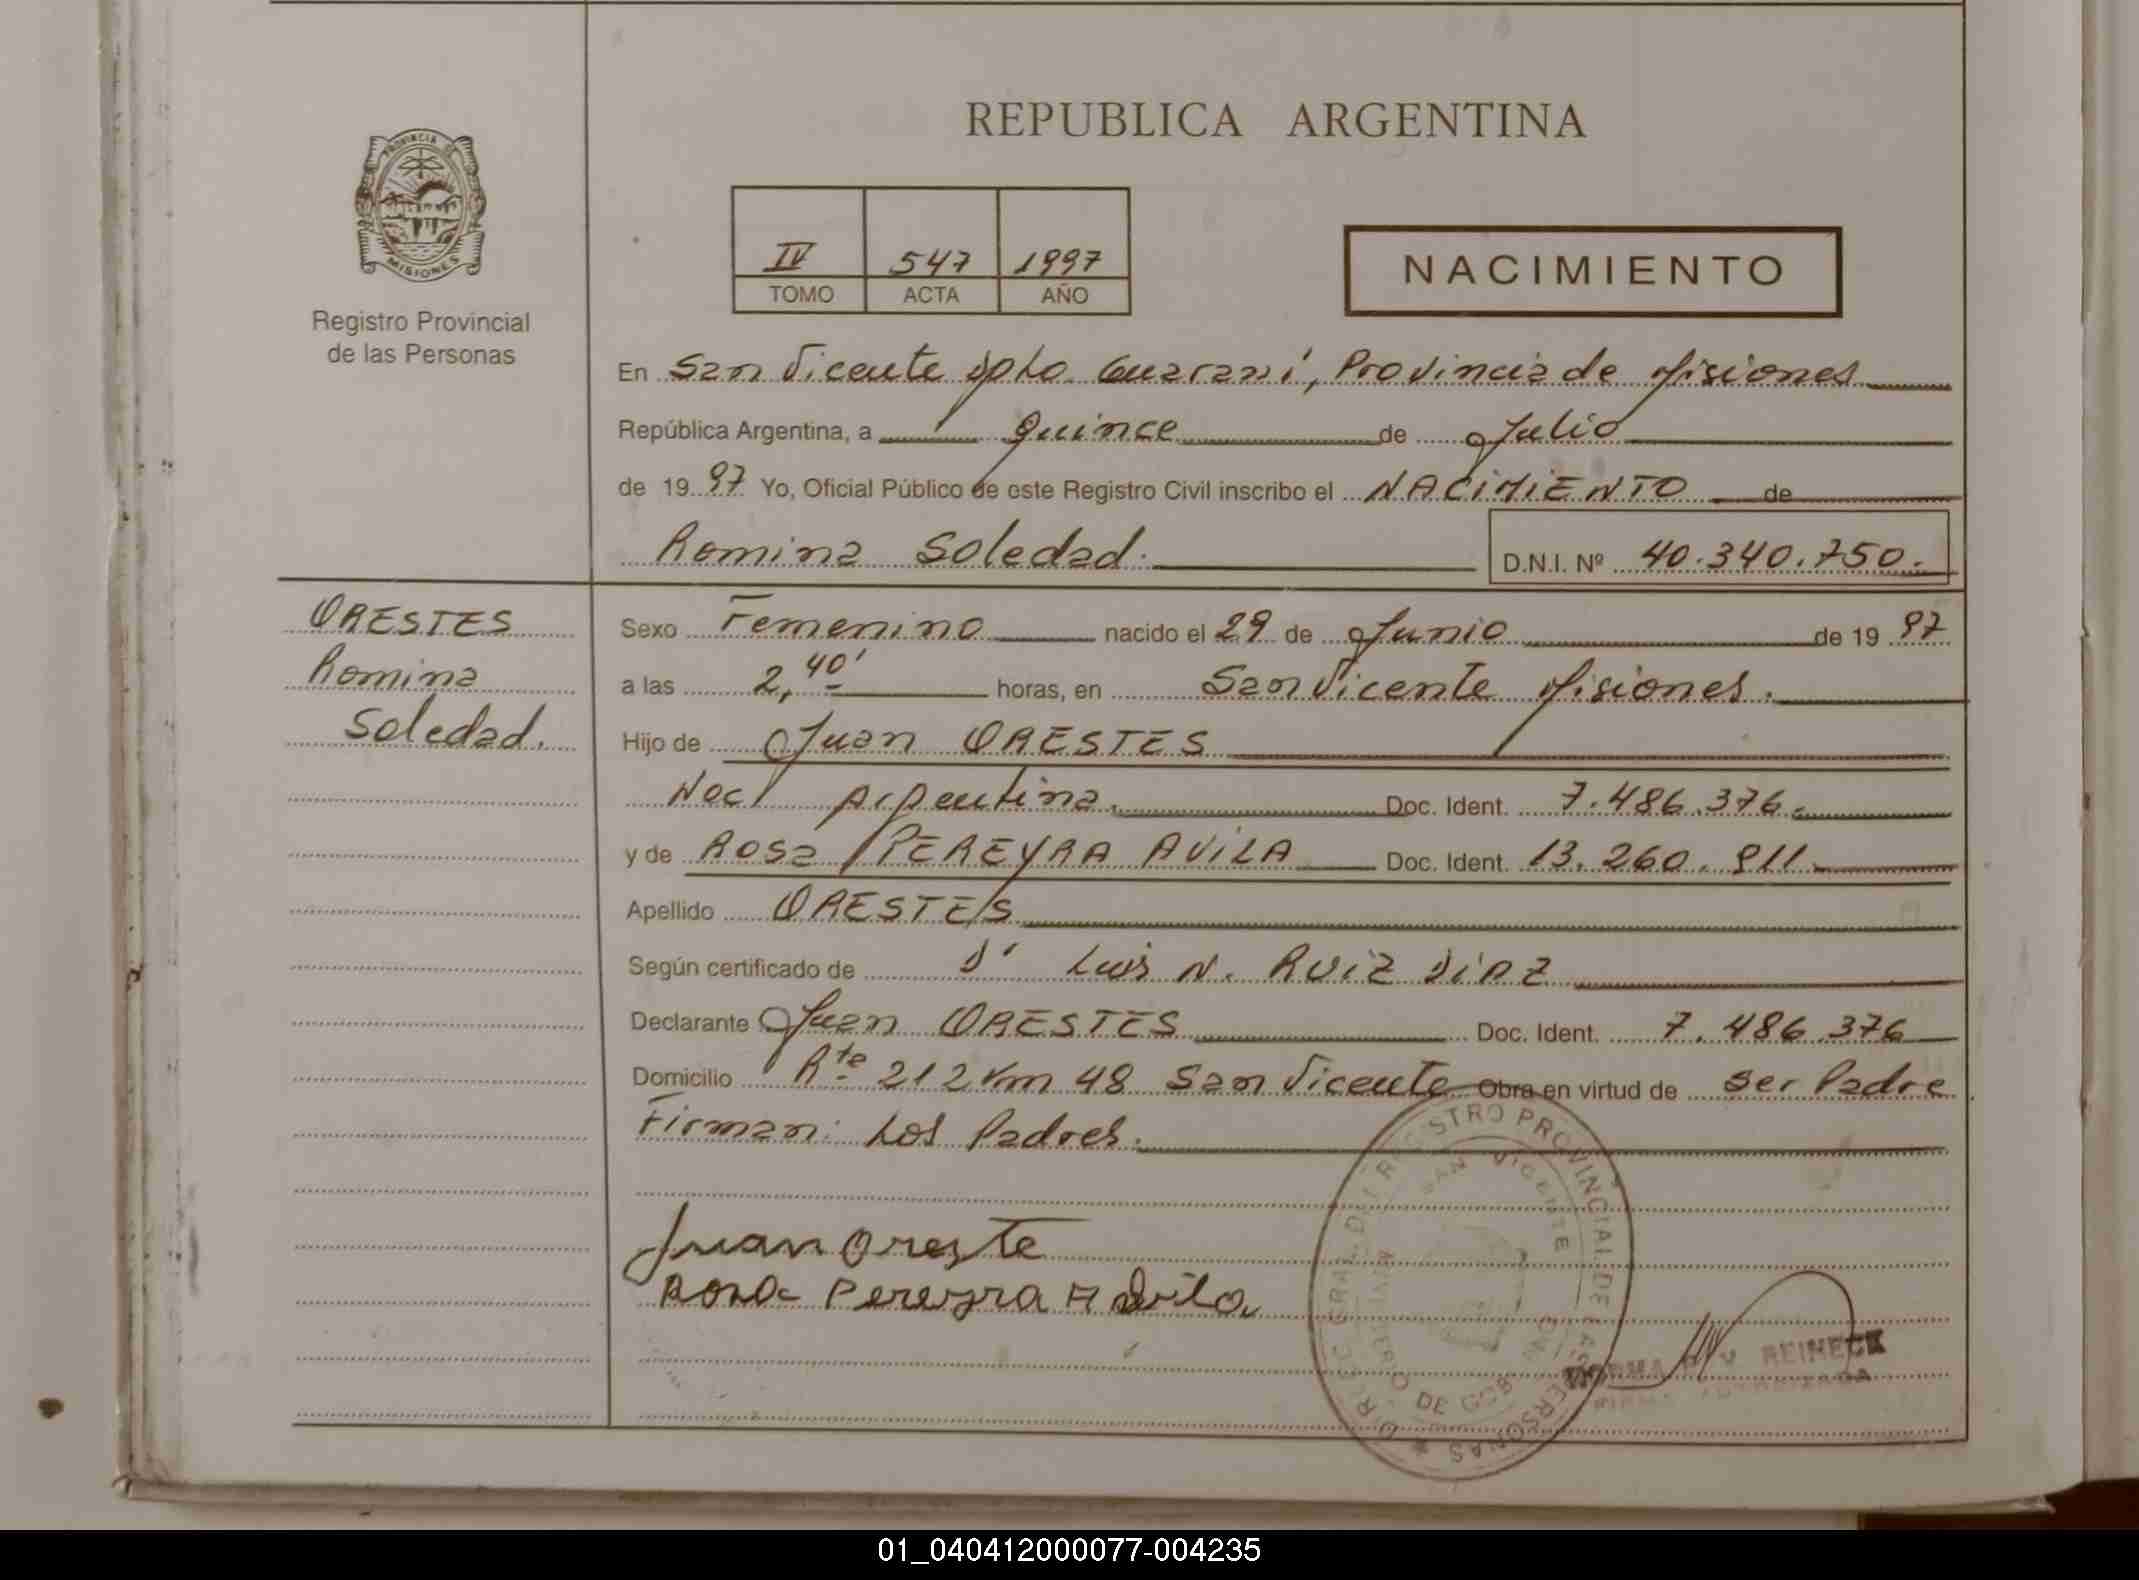 REPUBLICA ARGENTINA
PROVINCIA DE
MISIONES
Registro Provincial
de las Personas
IV 547 1997
TOMO ACTA AÑO
NACIMIENTO
En San Vicente Dpto Guaraní, Provincia de Misiones
República Argentina, a Quince de Julio
de 1997 Yo, Oficial Público de este Registro Civil inscribo el NACIMIENTO de
Romina Soledad. D.N.I. Nº 40.340.750.
ORESTES
Romina
Soledad.
Sexo Femenino nacido el 29 de Junio de 1997
a las 2,40' horas, en San Vicente Misiones.
Hijo de Juan ORESTES
Nac/ Argentina. Doc. Ident. 7.486.376.
y de Rosa PEREYRA AVILA Doc. Ident. 13.260.911.
Apellido ORESTES
Según certificado de Dr Luis N. RUIZ DIAZ
Declarante Juan ORESTES Doc. Ident. 7.486.376
Domicilio Rte 212 Km 48 San Vicente Obra en virtud de ser Padre
Firman: Los Padres.
Juan Oreste
Rosa Pereyra Avila
DIREC. GRAL. DEL REGISTRO PROVINCIAL DE LAS PERSONAS
SAN VICENTE
DE GOB
NORMA REINECK
01_040412000077-004235